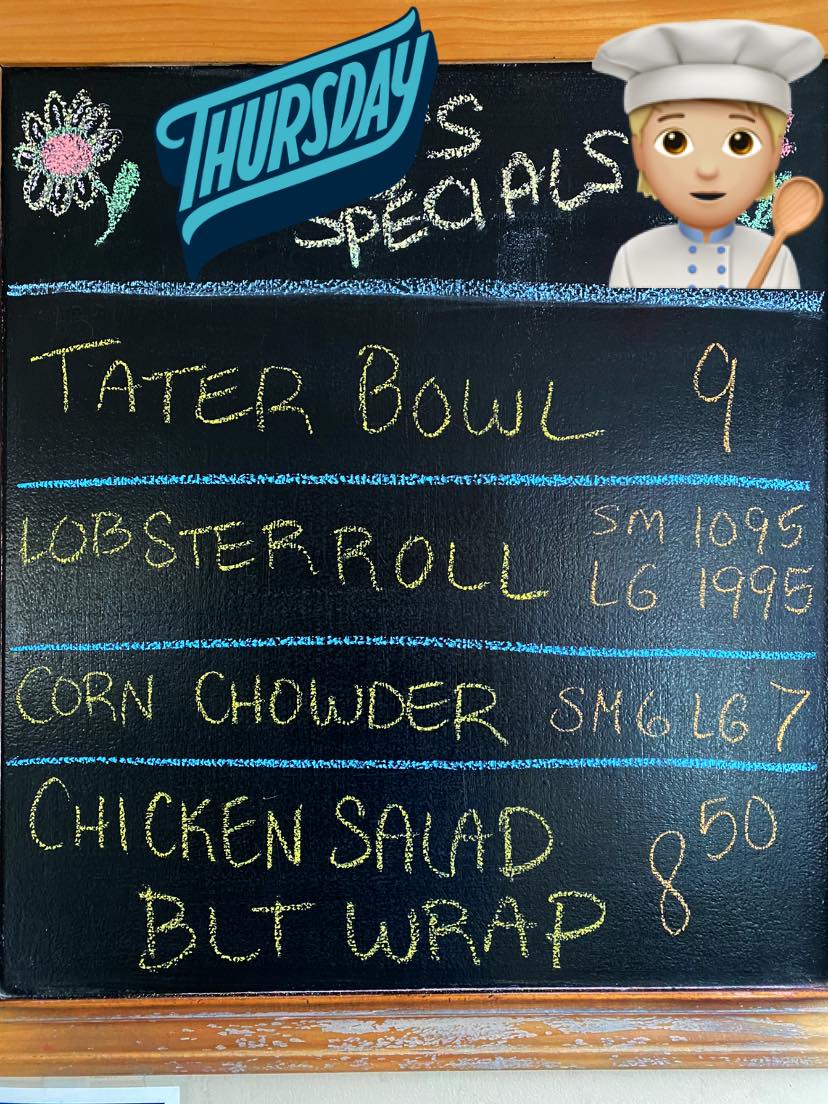 THURSDAY
S
SPECIALS
TATER BOWL 9
LOBSTER ROLL SM 1095
LG 1995
CORN CHOWDER SM 6 LG 7
CHICKEN SALAD 850
BLT WRAP